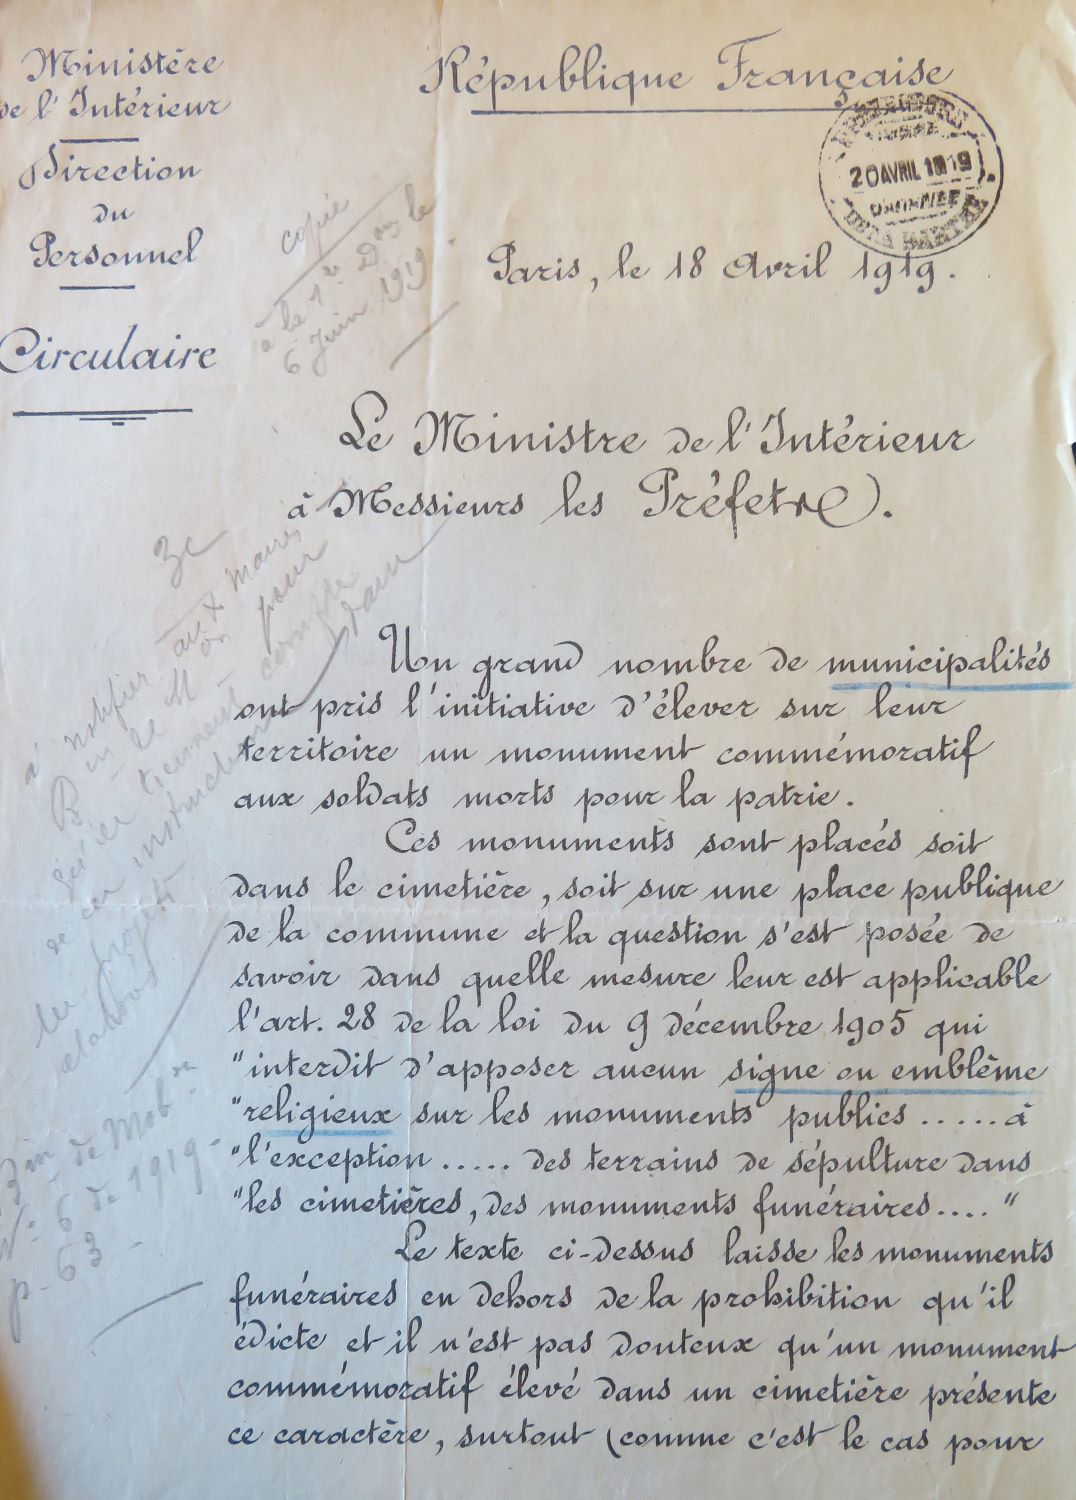 Ministère
de l'Intérieur
Direction
du
Personnel
Circulaire
République Française
20 AVRIL 1919
Paris, le 18 Avril 1919.
copie
à la 1re Don le
6 Juin 1919
Le Ministre de l'Intérieur
à Messieurs les Préfets
Un grand nombre de municipalités
ont pris l'initiative d'élever sur leur
territoire un monument commémoratif
aux soldats morts pour la patrie.
Ces monuments sont placés soit
dans le cimetière, soit sur une place publique
de la commune et la question s'est posée de
savoir dans quelle mesure leur est applicable
l'art. 28 de la loi du 9 décembre 1905 qui
"interdit d'apposer aucun signe ou emblême
"religieux sur les monuments publics ..... à
"l'exception ..... des terrains de sépulture dans
"les cimetières, des monuments funéraires...."
Le texte ci-dessus laisse les monuments
funéraires en dehors de la prohibition qu'il
édicte et il n'est pas douteux qu'un monument
commémoratif élevé dans un cimetière présente
ce caractère, surtout (comme c'est le cas pour
à notifier aux maires
pour
tiennent compte
instructions dans
projets
No 6 de 1919
p. 63